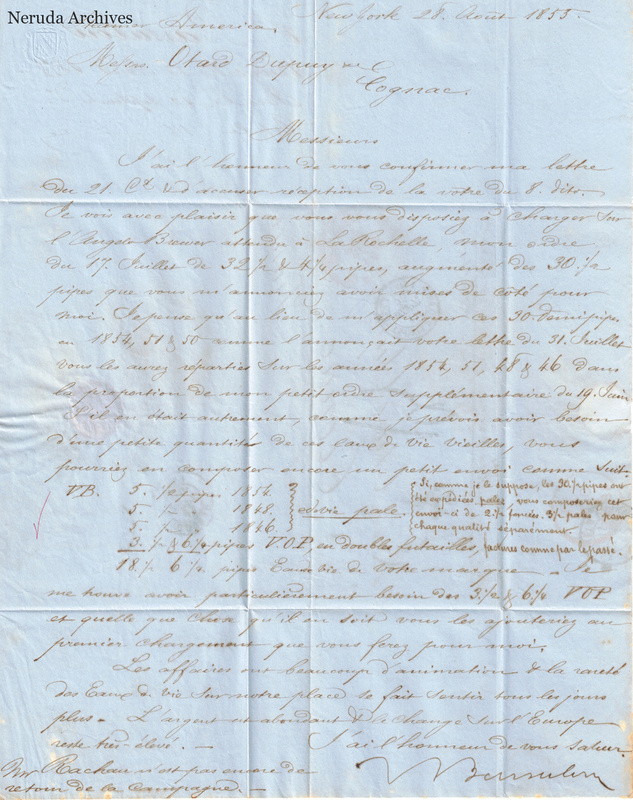 Neruda Archives
New York 28 Août 1855.
Steamer America.
Messrs. Otard Dupuy &
Cognac.
Messieurs
J'ai l'honneur de vous confirmer ma lettre
du 21 Ct. & d'accuser réception de la votre du 8. dito.
Je vois avec plaisir que vous vous disposiez à charger sur
l'Angelo Brewer attendu à La Rochelle, mon ordre
du 17. Juillet de 32 1/2 & 4/4 pipes, augmenté des 30. 1/2
pipes que vous m'annonciez avoir mises de côté pour
moi. Je pense qu'au lieu de m'appliquer ces 30. demi pipes
en 1854, 51 & 50 comme l'annonçait votre lettre du 31. Juillet
vous les aurez réparties sur les années 1854, 51, 48 & 46 dans
la proportion de mon petit ordre supplémentaire du 19. Juin
S'il en était autrement, comme je prévois avoir besoin
d'une petite quantité de ces eaux de vie vieilles, vous
pourriez en composer encore un petit envoi comme suit
VB. 5. 1/2 pipes 1854.
5. 1/2 — 1848.
5. 1/2 — 1846.
edvie pale.
Si, comme je le suppose, les 30. 1/2 pipes ont
été expédiées pales, vous composeriez cet
envoi-ci de 2. 1/2 foncées. 3 1/2 pales pour
chaque qualité séparément.
3. 1/2 & 6/4 pipes V.O.P. en doubles futailles, factures comme par le passé.
18. 1/2 6/4 pipes Eaux de vie de votre marque —
me trouve avoir particulièrement besoin des 3. 1/2 & 6/4 VOP
et quelle que chose qu'il en soit vous les ajouteriez au
premier chargement que vous ferez pour moi.
Les affaires ont beaucoup d'animation & la rareté
des Eaux de vie sur notre place se fait sentir tous les jours
plus. — L'argent est abondant & le change sur l'Europe
reste très élevé. —
J'ai l'honneur de vous saluer
Mr Rachau n'est pas encore de
retour de la Campagne. —